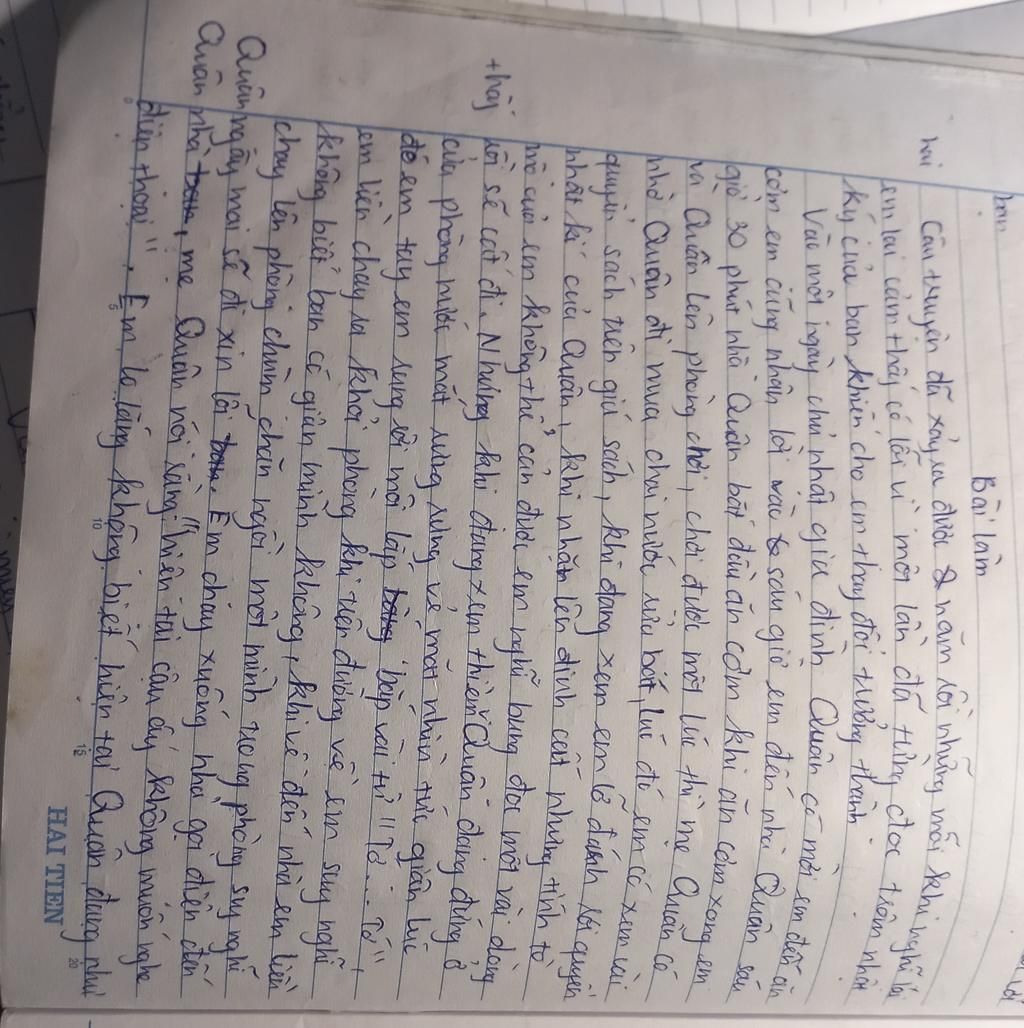 Bài làm
Câu truyện đã xảy ra được 2 năm rồi nhưng mỗi khi nghĩ lại
hai
em lại cảm thấy có lỗi vì một lần đã từng đọc trộm nhật
ký của bạn khiến cho em thay đổi trưởng thành
Vào một ngày chủ nhật gia đình Quân có mời em đến ăn
cơm em cũng nhận lời và sáu giờ em đến nhà Quân sáu
giờ 30 phút nhà Quân bắt đầu ăn cơm khi ăn cơm xong em
và Quân lên phòng chơi, chơi được một lúc thì mẹ Quân có
nhờ Quân đi mua chai nước rửa bát, lúc đó em có xem vài
quyển sách trên giá sách, khi đang xem em lỡ đánh rơi quyển
nhật kí của Quân, khi nhặt lên định cất nhưng tính tò
mò của em không thể cản được em nghĩ bụng đọc một vài dòng
rồi sẽ cất đi. Nhưng khi đang xem thì Quân đang đứng ở
thấy
cửa phòng nước mắt rưng rưng vẻ mặt nhìn tức giận lúc
đó em tuy em rưng rồi nói lắp bắp vài từ "Tớ... Tớ",
em liền chạy ra khỏi phòng khi trên đường về em suy nghĩ
không biết bạn có giận mình không, khi về đến nhà em liền
chạy lên phòng chùm chăn ngồi một mình trong phòng suy nghĩ
Quân ngày mai sẽ đi xin lỗi bạn. Em chạy xuống nhà gọi điện đến
Quân nhà bạn, mẹ Quân nói rằng "hiện tại cậu ấy không muốn nghe
điện thoại". Em lo lắng không biết hiện tại Quân đang như
0 5 10 15 20
HAI TIEN